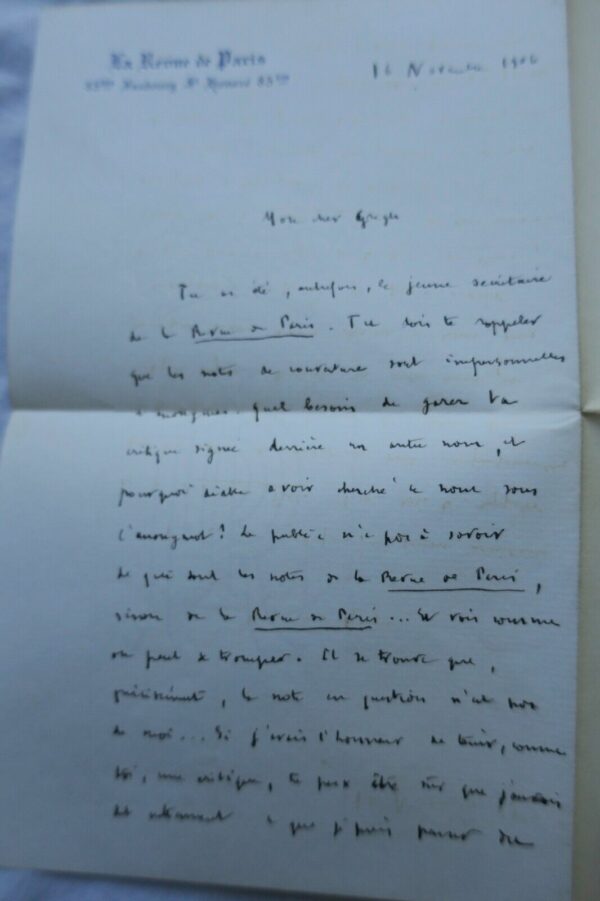 La Revue de Paris
85bis Faubourg St Honoré 85bis
16 Novembre 1906
Mon cher Gregh
Tu as été, autrefois, le jeune secrétaire
de la Revue de Paris. Tu dois te rappeler
que les notes de couverture sont impersonnelles
anonymes. Quel besoin de garer ta
critique signée derrière un autre nom, et
pourquoi diable avoir cherché ce nom sous
l'anonymat? Le public n'a pas à savoir
de qui sont les notes de la Revue de Paris,
sinon de la Revue de Paris... Et vois comme
on peut se tromper. Il se trouve que,
précisément, la note en question n'est pas
de moi... Si j'avais l'honneur de tenir, comme
toi, une critique, tu peux être sûr que j'aurais
dit nettement ce que j'puis penser du